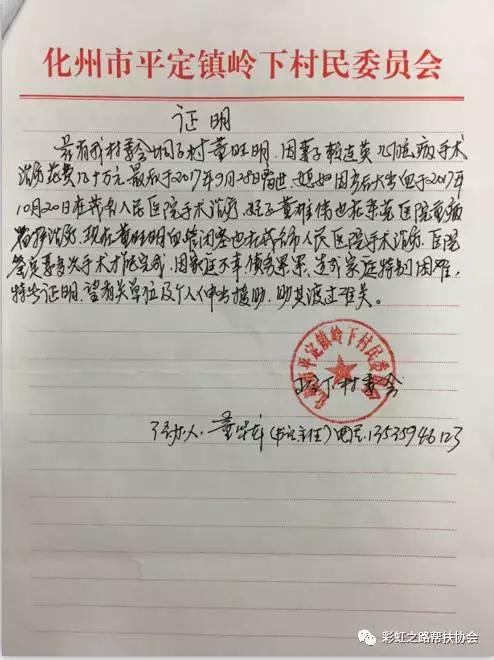 化州市平定镇岭下村民委员会
证明
兹有我村委会 村董旺明,因妻子赖连英心脏病手术
治疗花费几十万元最后于2017年9月28日离世,媳妇因产后大出血于2017年
10月20日在茂名人民医院手术治疗,儿子董雄伟也在茶苑医院
治疗,现在董旺明血管闭塞也在茂名市人民医院手术治疗,医院
答复要多次手术才能完成,因家庭不幸债务累累,造成家庭特别困难,
特此证明,望有关单位及个人伸出援助,助其渡过难关。
化州市平定镇岭下村民委员会
岭下村委会
经办人:董 (书记主任)电话:13535946123
彩虹之路帮扶协会